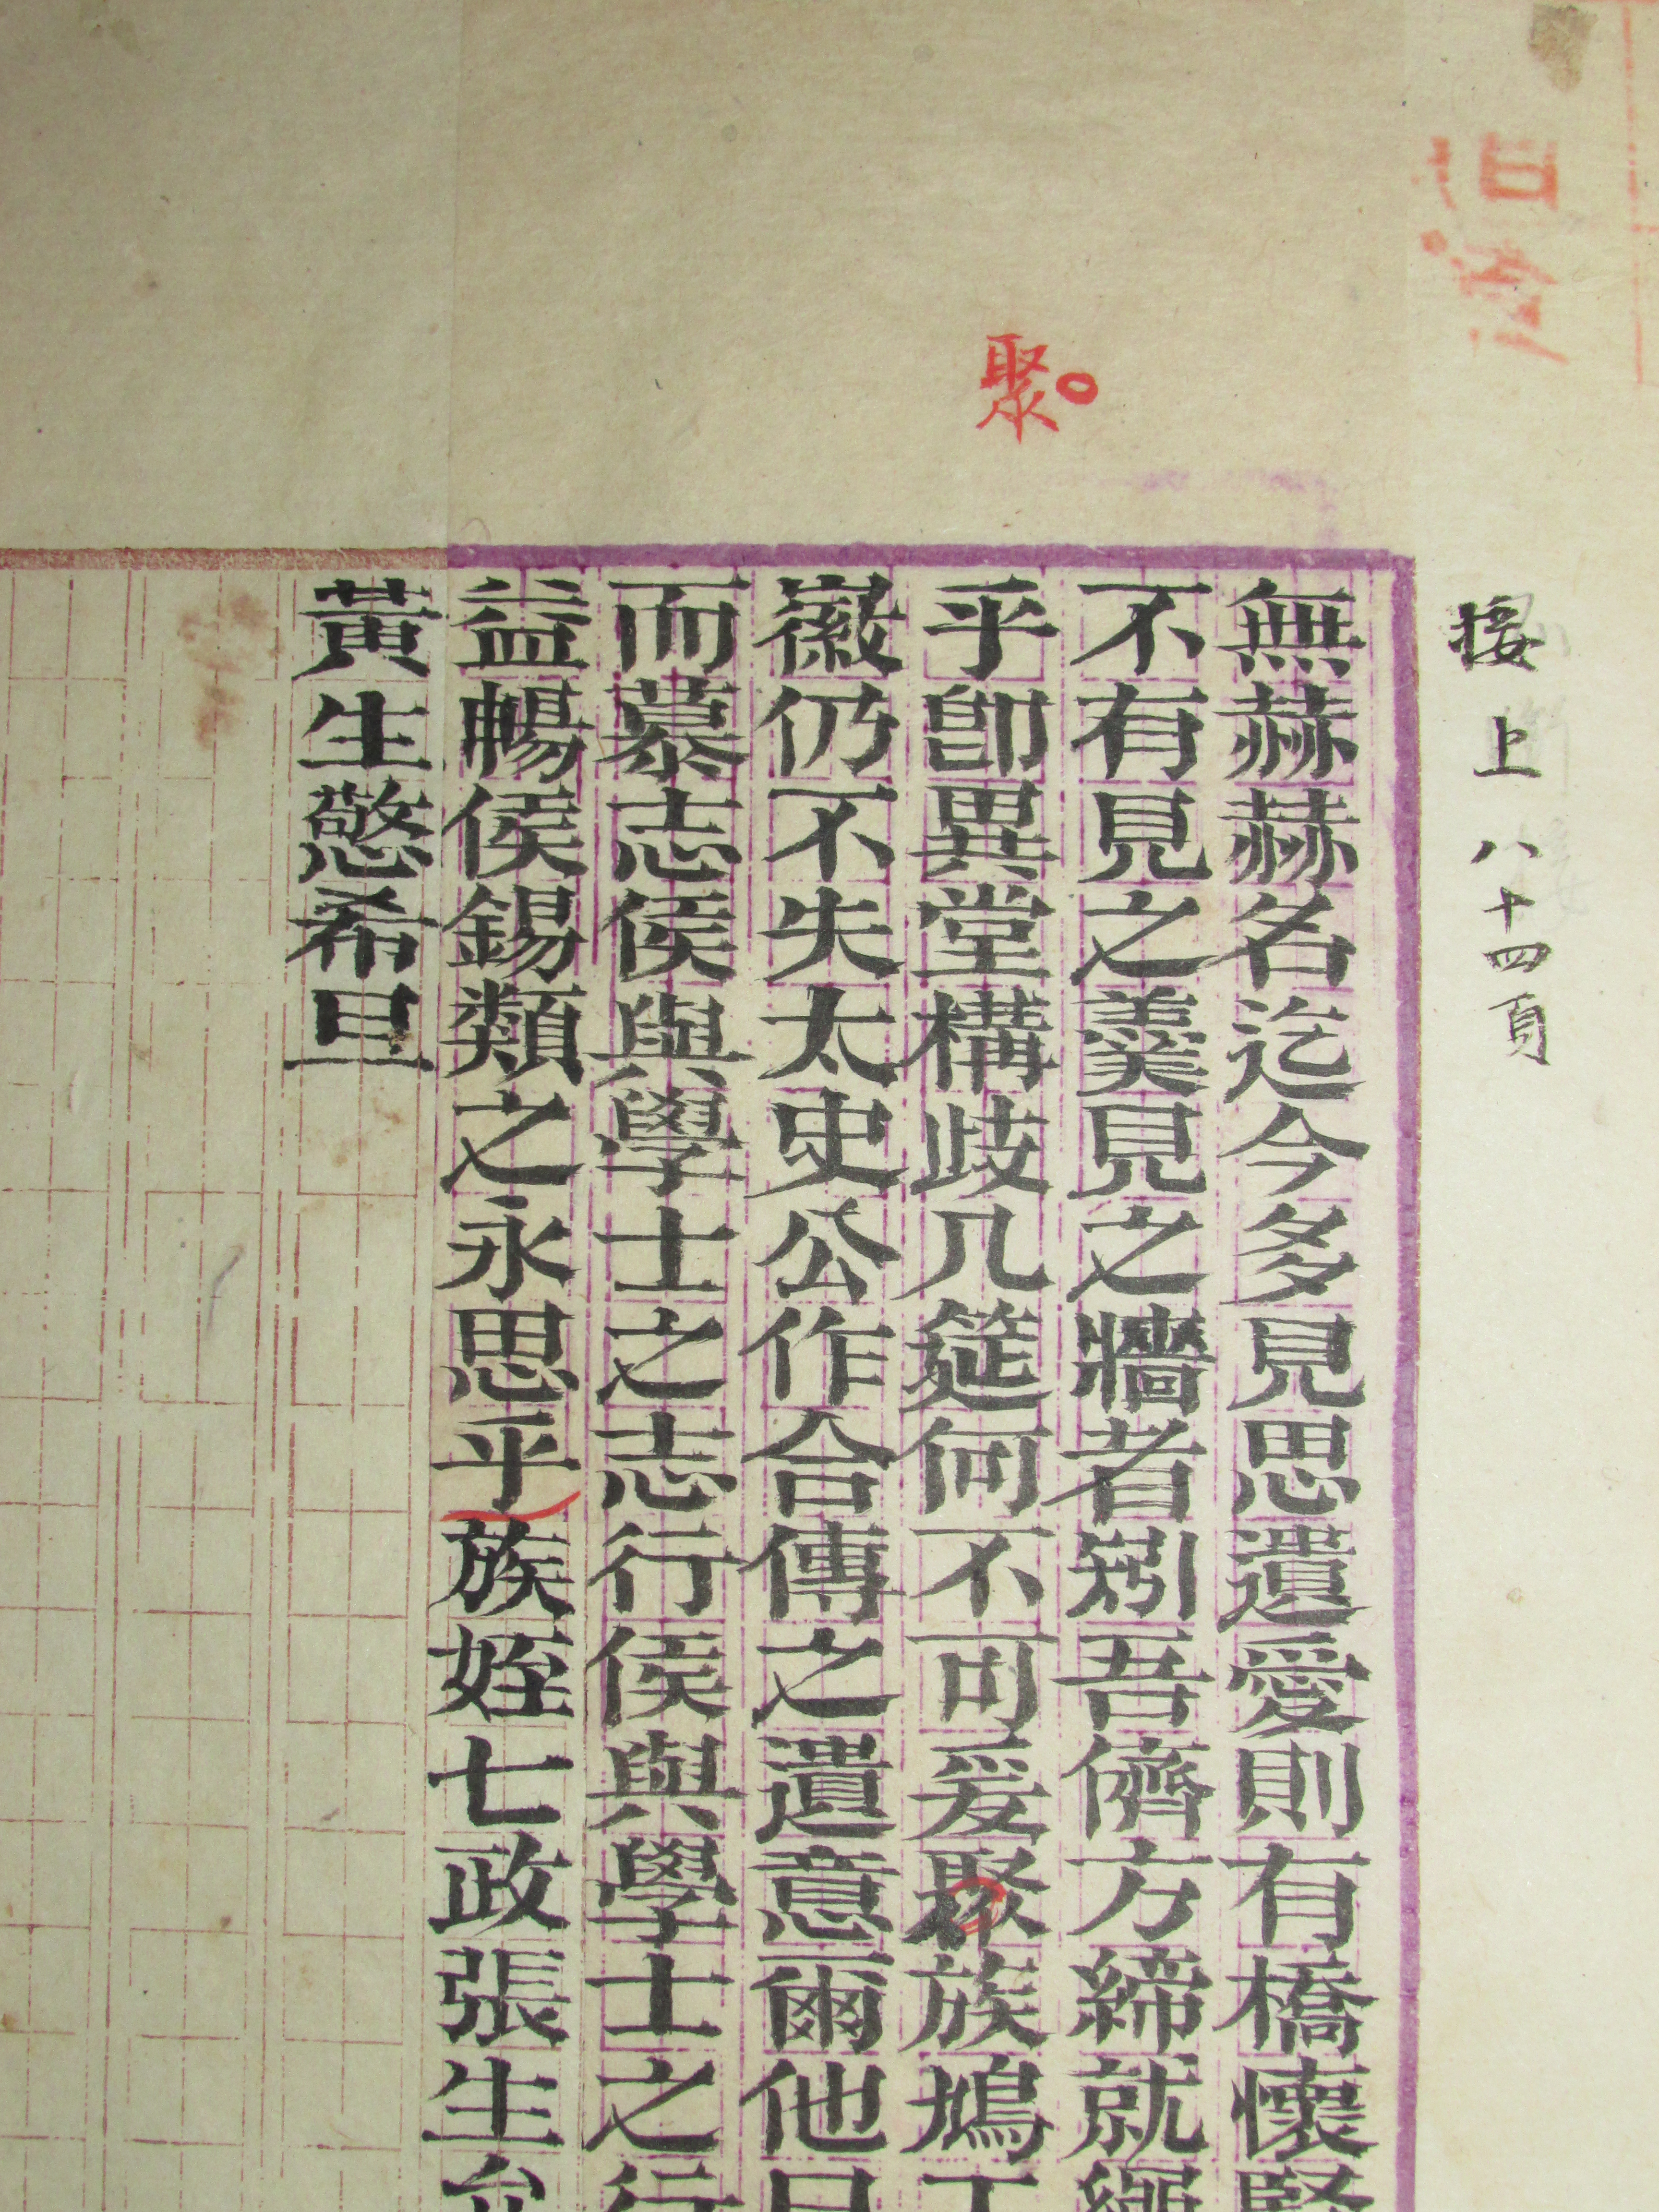 接上八十四頁
聚。
無赫赫名迄今多見思遺愛則有橋懷賢
不有見之羹見之牆者矧吾儕方締就繩
乎卽異堂構歧几筵何不可爰聚族鳩工
徽仍不失太史公作合傳之遺意爾他日
而慕志侯與學士之志行侯與學士之行
益暢侯錫類之永思乎族姪七政張生
黃生憨希旦